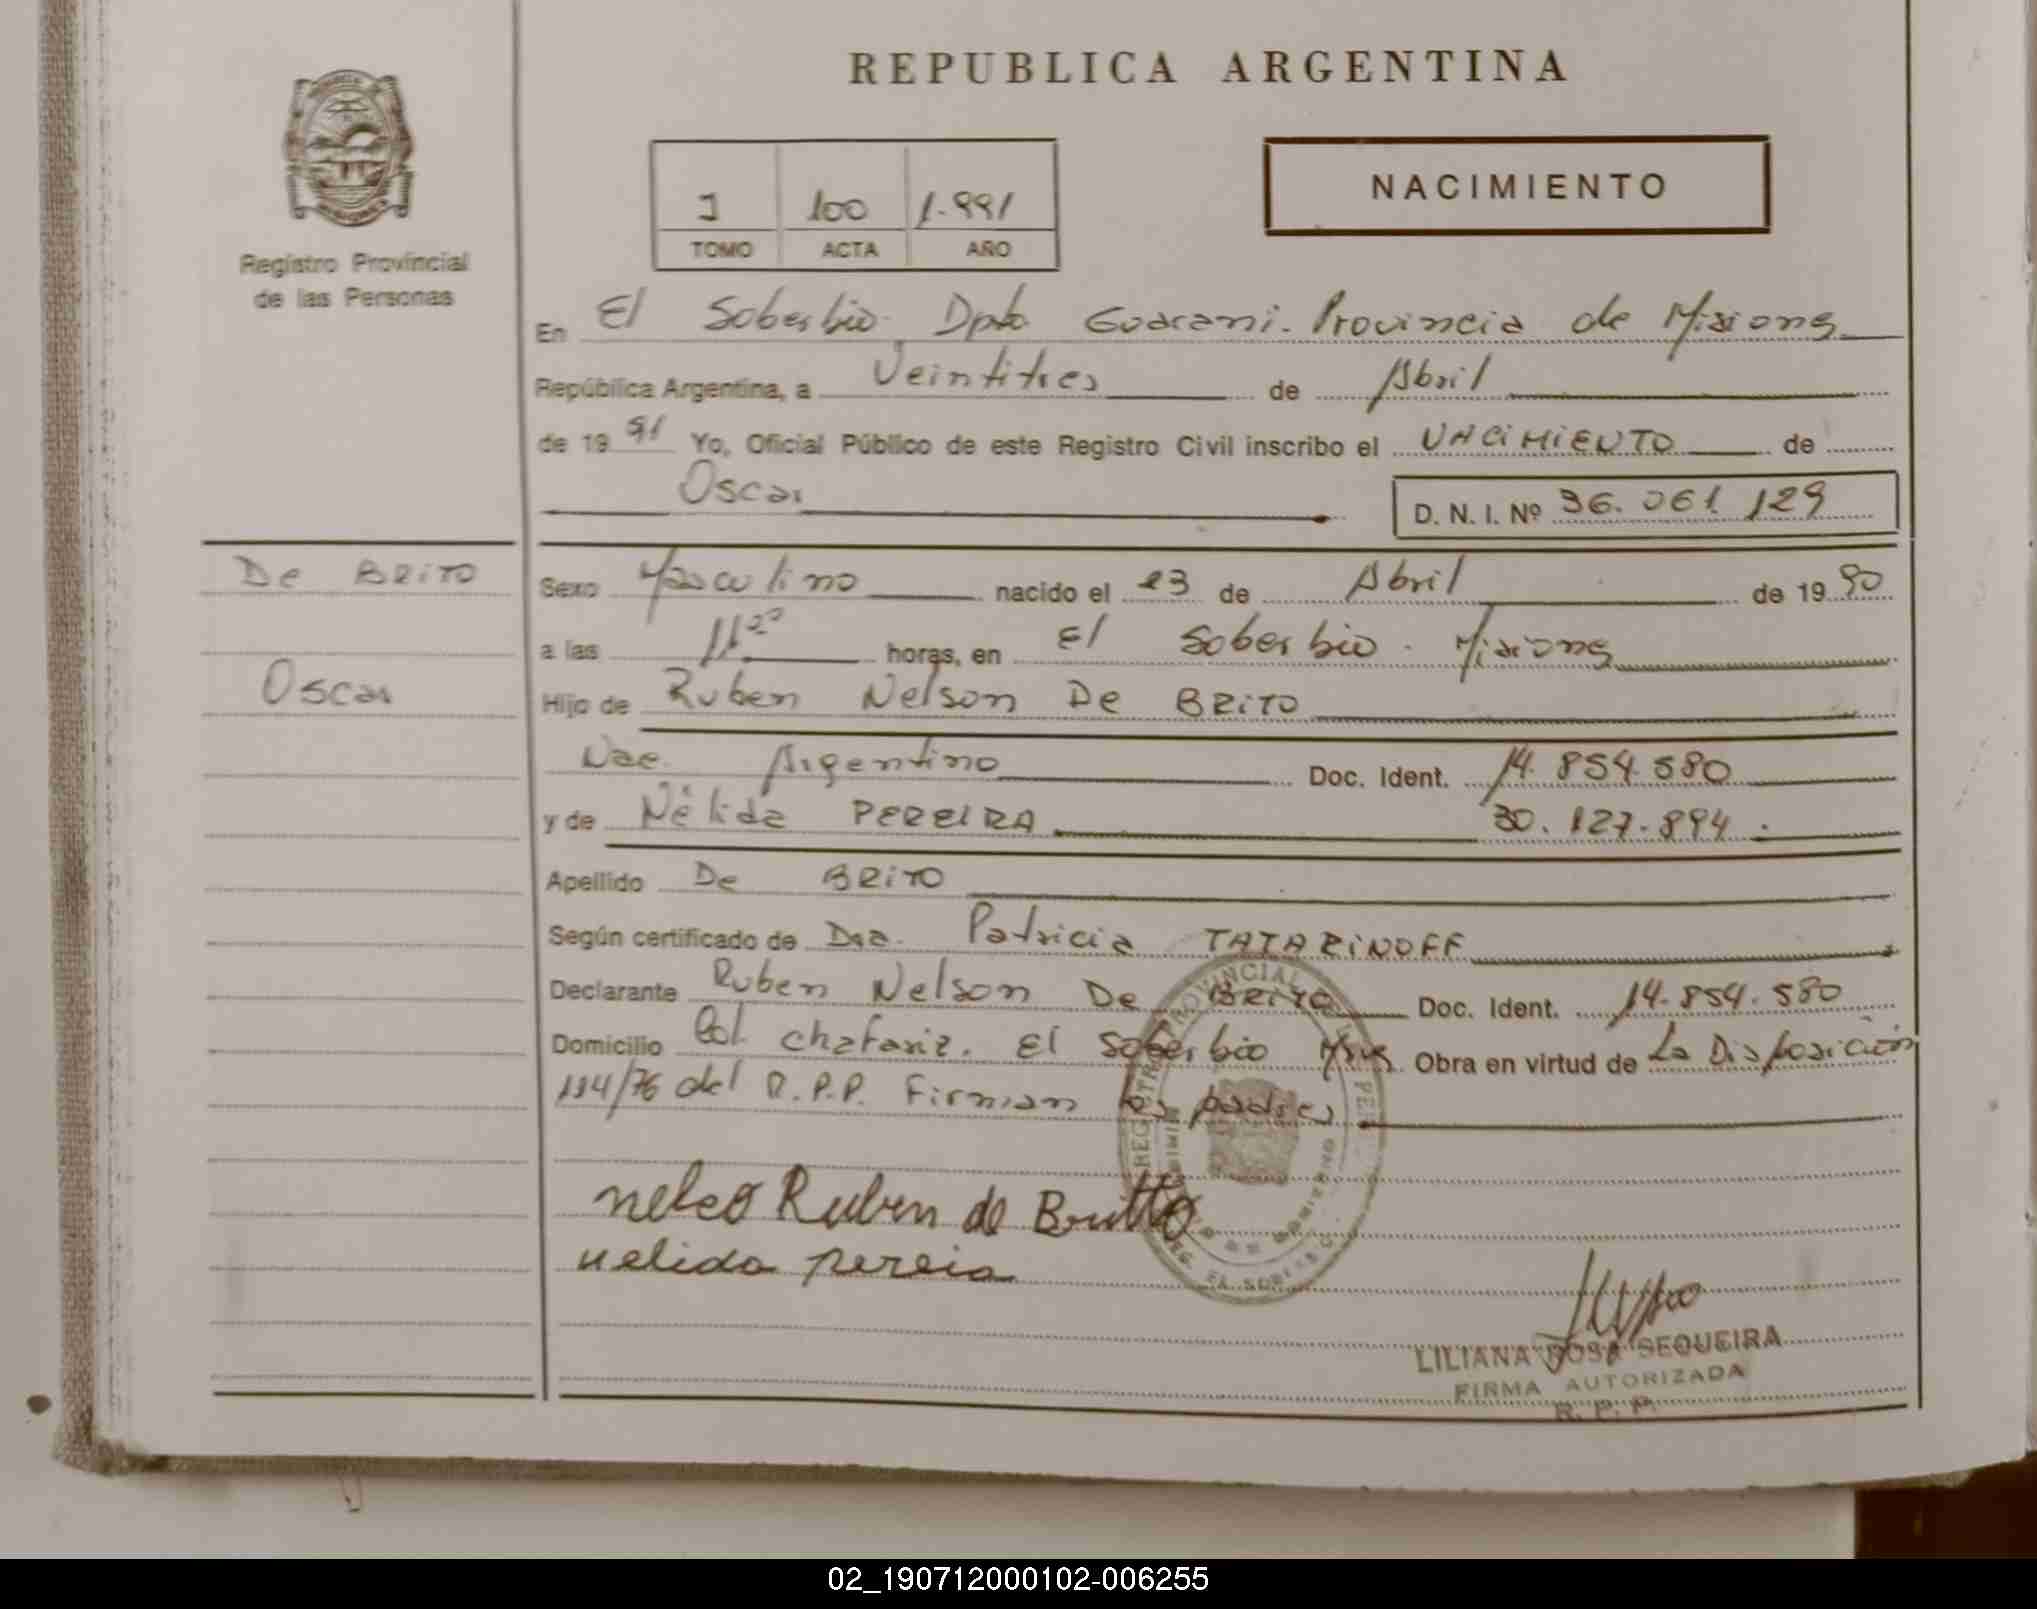 REPUBLICA ARGENTINA
NACIMIENTO
I 100 1.991
TOMO ACTA AÑO
Registro Provincial
de las Personas
En El Soberbio. Dpto. Guarani. Provincia de Misiones
República Argentina, a Veintitres de Abril
de 19 91 Yo, Oficial Público de este Registro Civil inscribo el NACIMIENTO de
Oscar
D. N. I. Nº 36. 061. 129
De BRITO
Oscar
Sexo Masculino nacido el 23 de Abril de 19 90
a las 11 horas, en El Soberbio. Misiones
Hijo de Ruben Nelson De BRITO
Nac. Argentino Doc. Ident. 14. 854. 580
y de Nélida PEREIRA 30. 127. 894.
Apellido De BRITO
Según certificado de Dra. Patricia TATARINOFF
Declarante Ruben Nelson De BRITO Doc. Ident. 14. 854. 580
Domicilio Col. Chafariz. El Soberbio Mnes. Obra en virtud de La Disposición
114/76 del R.P.P. Firman los padres
Ruben de Britto
nelida pereia
LILIANA ROSA SEQUEIRA
FIRMA AUTORIZADA
R. P. P.
02_190712000102-006255